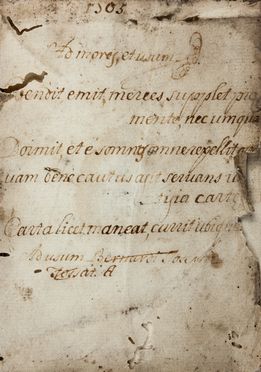 1305
Ad mores, et usum
Vendit emit, merces supplet pro
mente nec umqua
Dormit et è somno, omne repellit
quam bene cautus aut servans
carte
Carta licet maneat, currit ubiqu
Ad usum Bernardi
A